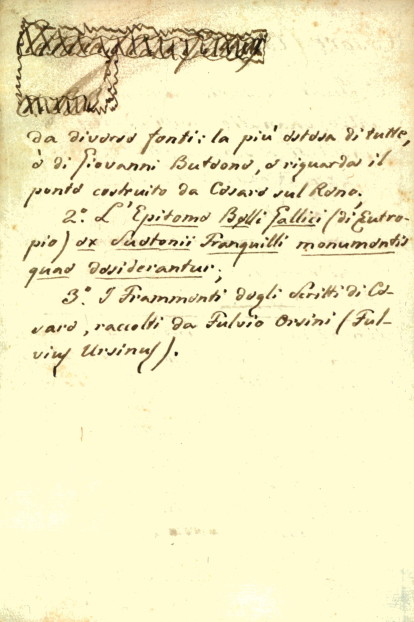 da diverse fonti: la più estesa di tutte,
è di Giovanni Buteone, e riguarda il
ponte costruito da Cesare sul Reno.
2.º L'Epitome Belli Gallici (di Eutro-
pio) ex Suetonii Tranquilli monumentis
quae desiderantur;
3.º I Frammenti degli Scritti di Ce-
sare, raccolti da Fulvio Orsini (Ful-
vius Ursinus).